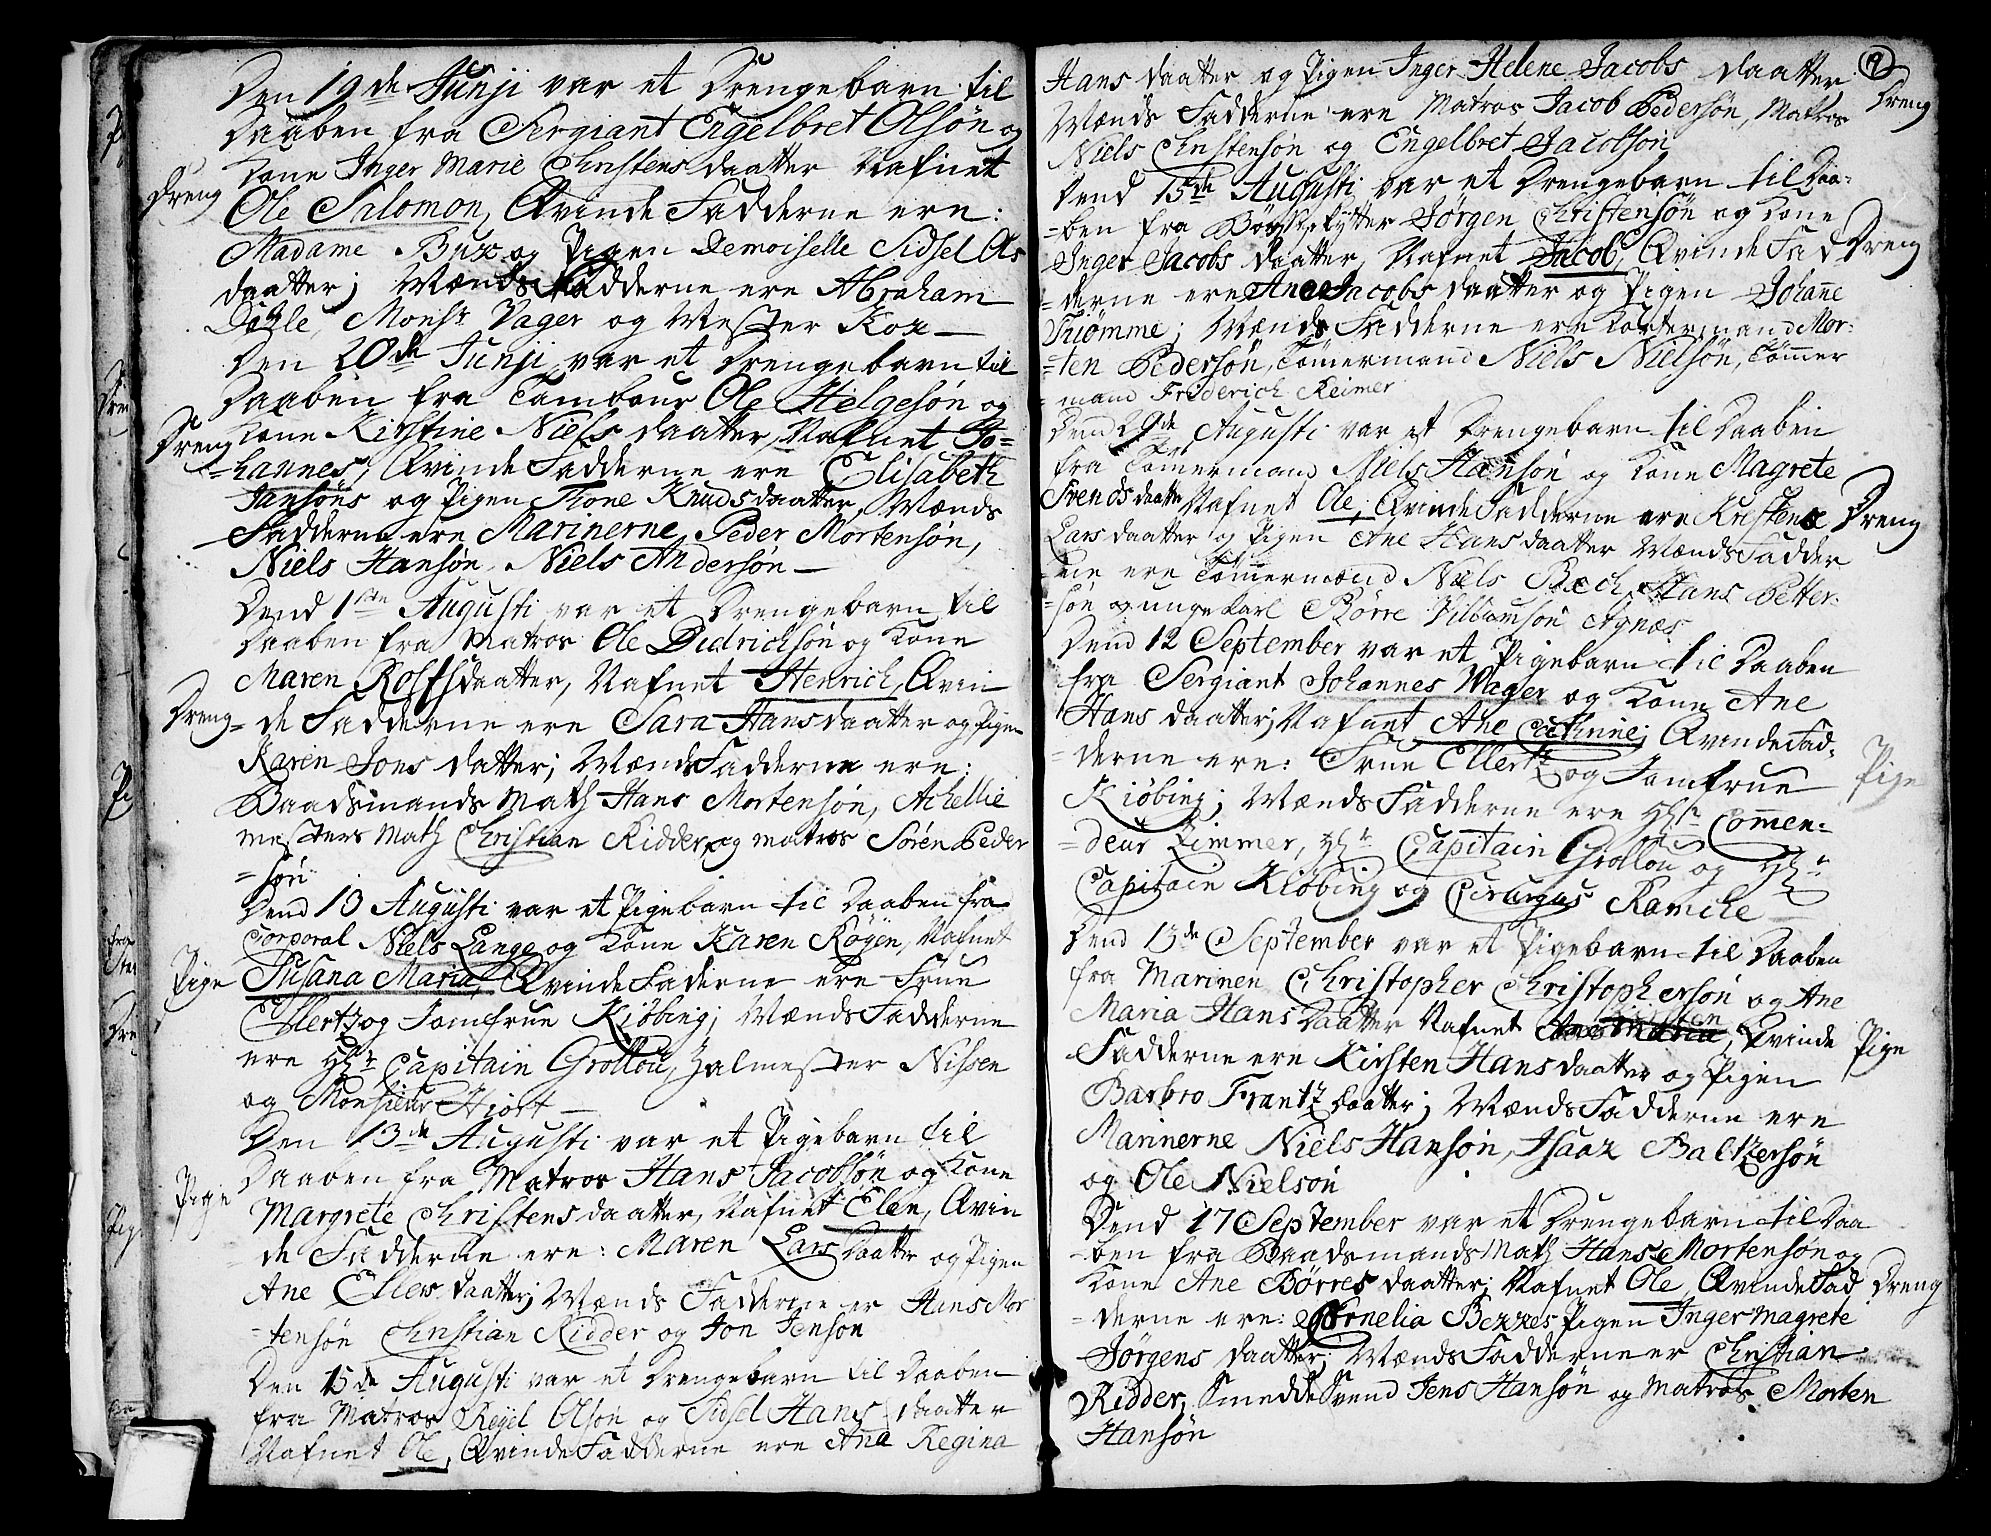 Den 19de Junji var et Drengebarn til
Daaben fra Sergiant Engelbret Olsøn og
Kone Inger Marie Christensdaatter Nafnet
Dreng
Ole Salomon, Qvinde Fadderne ere:
Madame Bux og Pigen Demoiselle Sidsel Ols
daatter; Mænds Fadderne ere Abraham
Monsr Vager og Mester Kox
Den 20de Junji var et Drengebarn til
Daaben fra Tambour Ole Helgesøn og
Dreng
Kone Kirstine Niels daatter, Nafnet Jo=
=hannes, Qvinde Fadderne ere Elisabeth
Jansøns og Pigen Thone Knudsdaatter, Mænds
Fadderne ere Marinerne Peder Mortensøn,
Niels Hansøn, Niels Andersøn
Dend 1ste Augusti var et Drengebarn til
Daaben fra Matros Ole Didrichsøn og Kone
Maren Rolfsdaatter, Nafnet Henrich, Qvin
Dreng
=de Fadderne ere Sara Hansdaatter og Pigen
Karen Jons datter; Mænds Fadderne ere:
Baadsmands Math Hans Mortensøn, Achellie
mesters Math Christian Ridder, og matros Sören Peder
=søn
Dend 13 Augusti var et Pigebarn til Daaben fra
Corporal Niels Lange og Kone Karen Røyen, Nafnet
Pige
Susana Maria, Qvinde Faderne ere Frue
Ellertz og Jomfrue Kiöbing; Mænds Fadderne
ere Hr Capitain Grollou, Zalmester Nissen
og Monsieur Hiort
Den 13de Augusti var et Pigebarn til
Daaben fra Matros Hans Jacobsøn og Kone
Pige
Margrete Christensdaatter, Nafnet Elen, Qvin
=de Fadderne ere: Maren Lars Daatter og Pigen
Ane Ellers daatter; Mænds Fadderne er Hans Mor
=tensøn Christian Ridder og Jon Jensøn
Den 15de Augusti var et Drengebarn til Daaben
fra Matros Reyel Olsøn og Sidsel Hans daatter
Nafnet Ole, Qvinde Fadderne ere Ana Regina
19
Hans daatter og Pigen Inger Helene Jacobs daatter
Dreng
Mænds Fadderne ere Matros Jacob Pedersøn, Matros
Niels Christensøn og Engelbret Jacobsøn
Dend 15de Augusti var et Drengebarn til Daa=
=ben fra Bøsseskytter Jørgen Christensøn og Kone
Inger Jacobs daatter, Nafnet Jacob, Qvinde Fad
Dreng
=derne ere Ane Jacobs daatter og Pigen Johañe
Tiømme; Mænds Fadderne ere Mor=
=ten Pedersøn, Tömermand Niels Nielsøn, Tömmer
=mand Friderich Reimer
Dend 29de Augusti var et Drengebarn til Daaben
fra Tömermand Niels Hansøn og Kone Magrete
Svends daatter Nafnet Ole; Qvinde Fadderne ere Kristense
Dreng
Lars daatter og Pigen Ane Hans daatter Mænds Fadder
=ne ere Tömermænd Niels Bech, Hans Petter=
=søn og unge Karl Børre Villumsøn Agnæs
Dend 12 September var et Pigebarn til Daaben
fra Sergiant Johannes Wager og Kone Ane
Hans daatter; Nafnet Ane Cathrine; Qvinde Fad=
=derne ere: Frue Ellertz og Jomfrue
Pige
Kiöbing; Mænds Fadderne ere Hr Comen=
=deur Zimmer, Hr Capitain Grollou og Hr
Capitain Kiöbing og Cirurgus Ramche
Dend 13de September var et Pigebarn til Daaben
fra Marinen Christopher Christophersøn og Ane
Maria Hans Daatter Nafnet Ane Maria, Qvinde
Pige
Fadderne ere Kirsten Hansdaatter og Pigen
Barbro Frantz Daatter; Mænds Fadderne ere
Marinerne Niels Hansøn, Isaax Baltzersøn
og Ole Nielsøn
Dend 17 September var et Drengebarn til Daa
=ben fra Baadsmands Math Hans Mortensøn og
Kone Ane Børres daatter; Nafnet Ole Qvinde Fad
Dreng
=derne ere: Cornelia Bexxes Pigen Inger magrete
Jørgens daatter; Mænds Fadderne er Christian
Ridder, Smedde Svend Jens Hansøn og Matros Morten
Hansøn